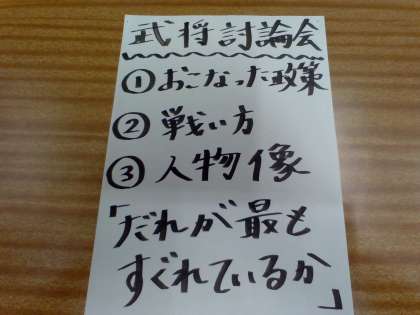 武将討論会
①おこなった政策
②戦い方
③人物像
「だれが最も
すぐれているか」